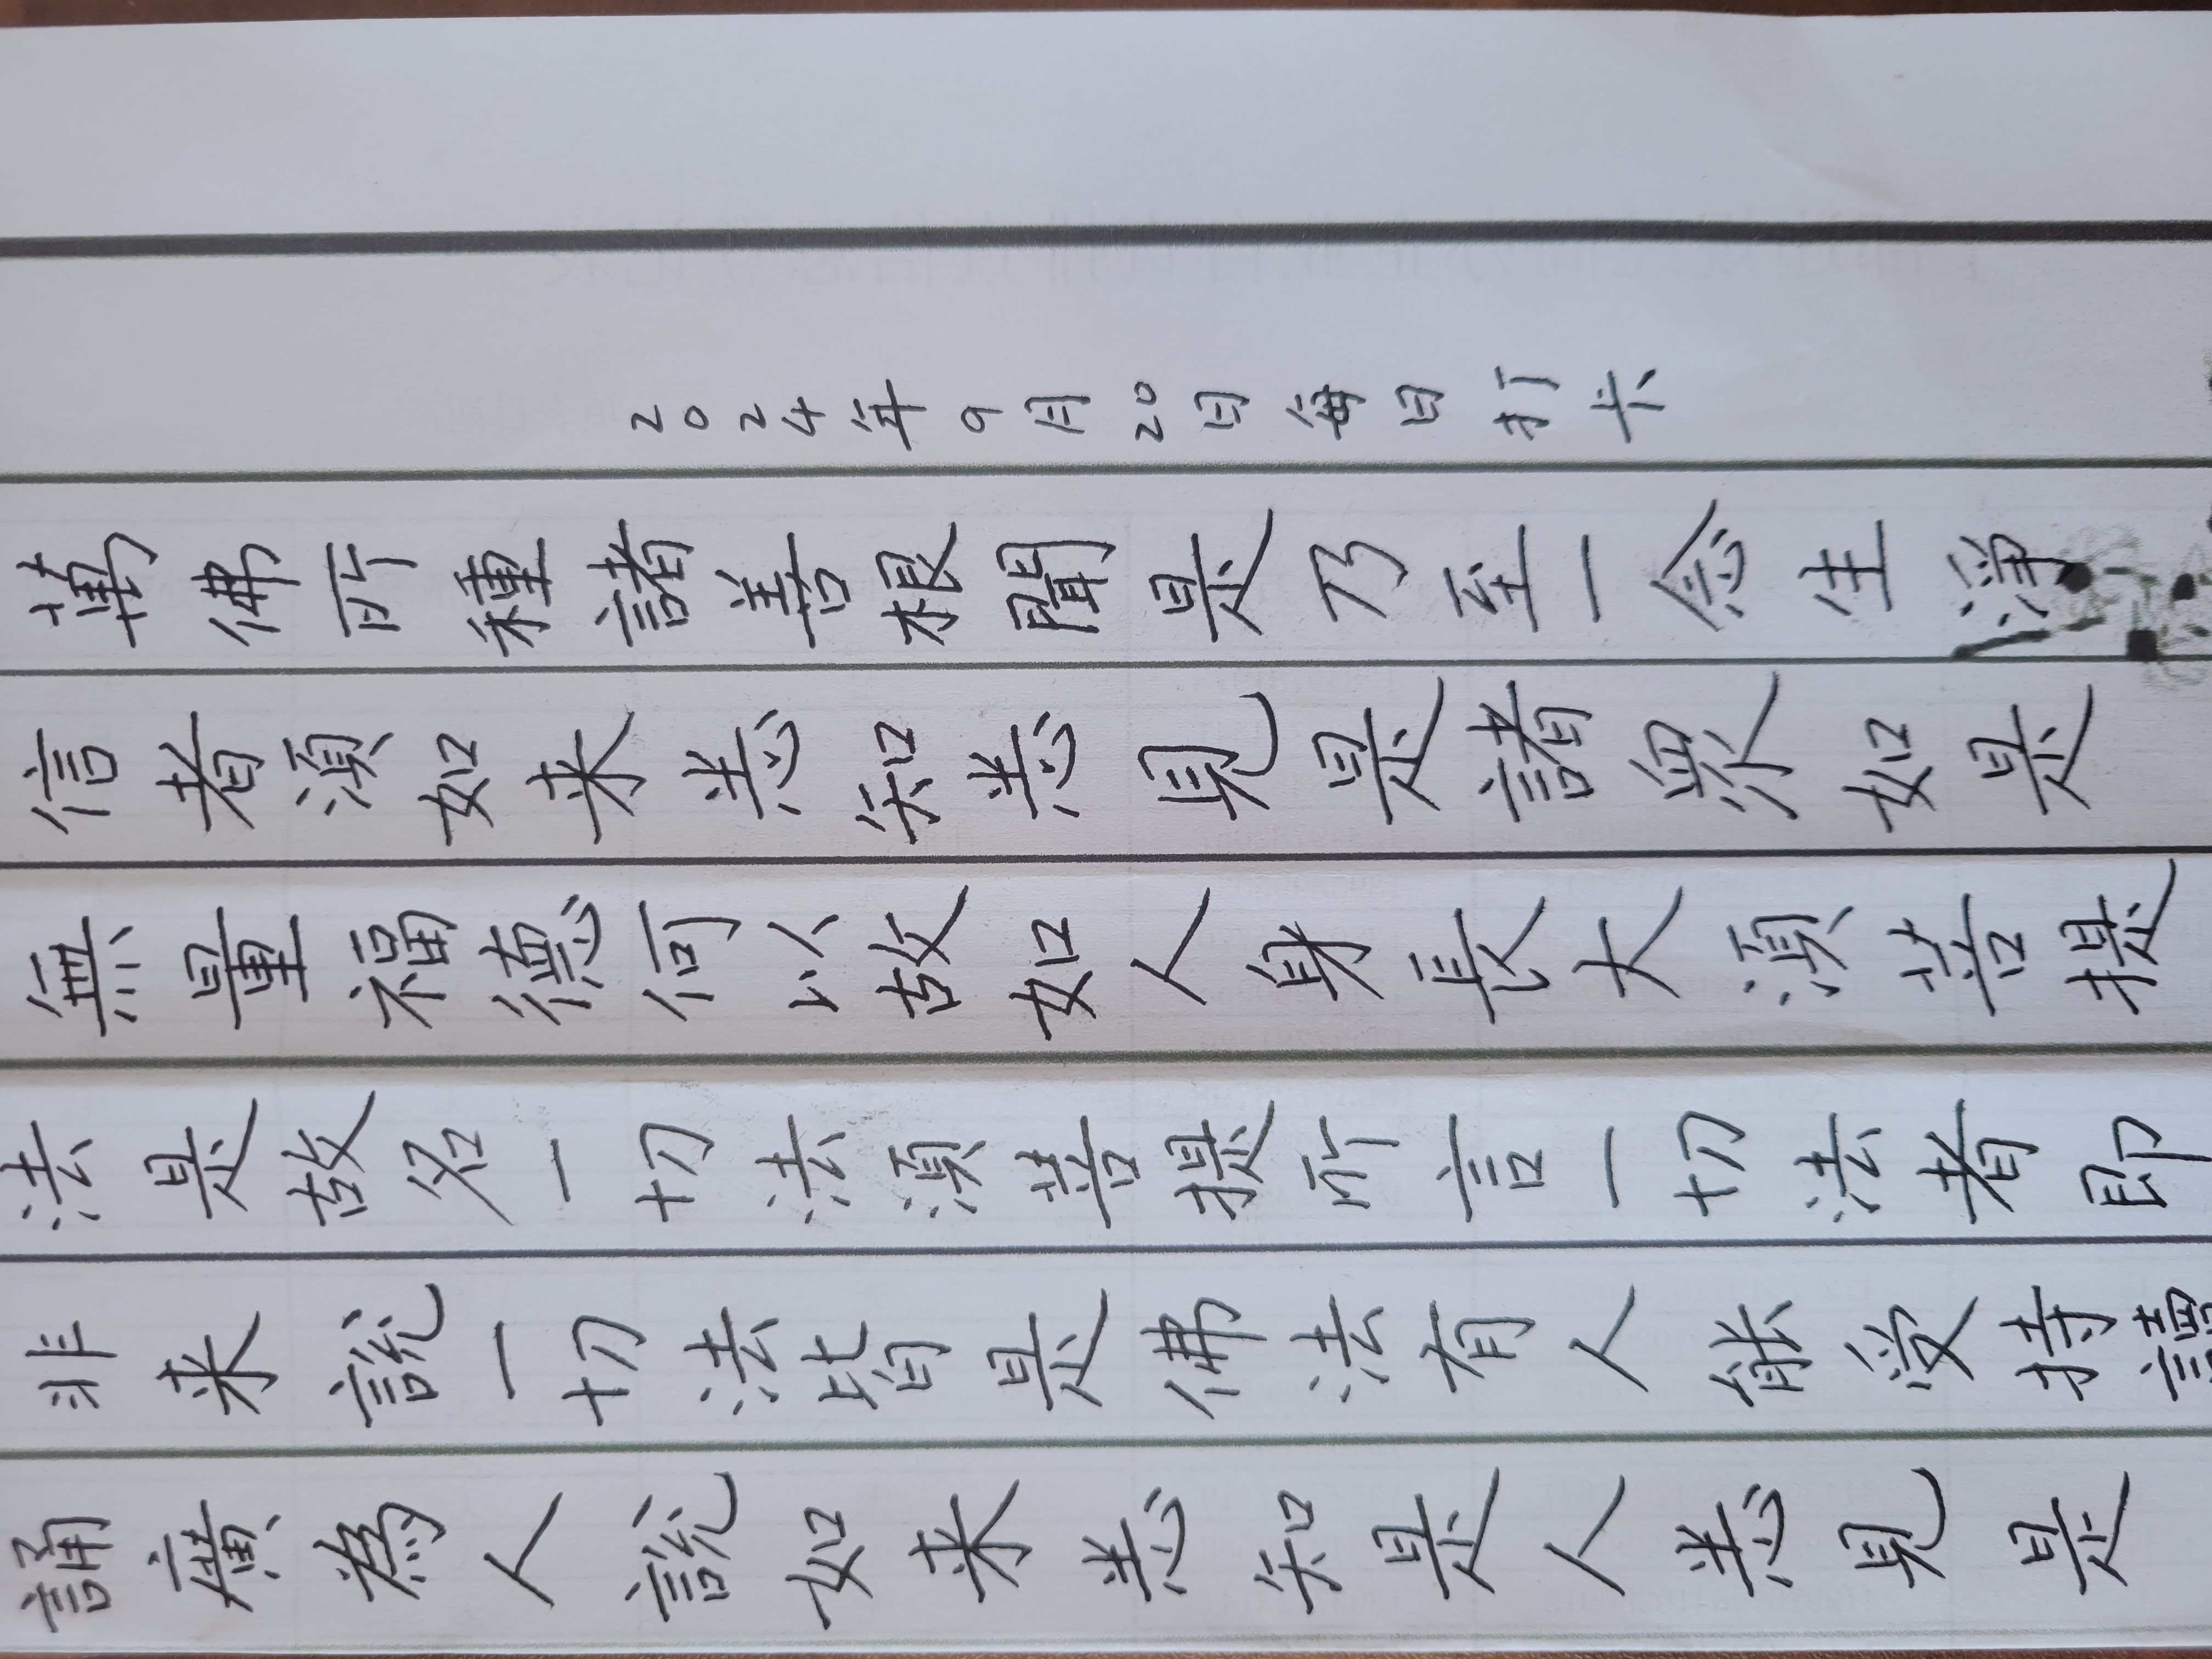 2024年9月20日每日打卡
萬佛所種諸善根聞是乃至一念生淨
信者須如来悉知悉見是諸眾如是
無量福德何以故如人身長大須菩提
法是故名一切法須菩提所言一切法者即
非来說一切法皆是佛法有人能受持讀
誦廣為人說如来悉知是人悉見是